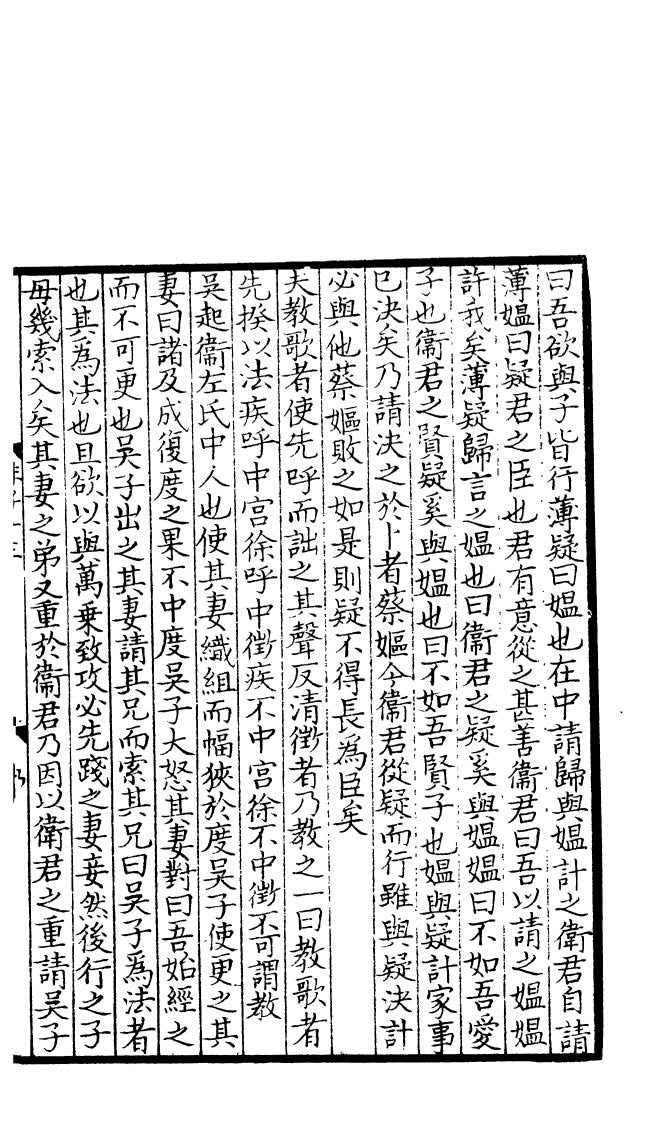 曰吾欲與子皆行薄疑曰媼也在中請歸與媼計之衛君自請
薄媼曰疑君之臣也君有意從之甚善衛君曰吾以請之媼媼
許我矣薄疑歸言之媼也曰衛君之疑奚與媼媼曰不如吾愛
子也衛君之賢疑奚與媼也曰不如吾賢子也媼與疑計家事
已決矣乃請決之於卜者蔡嫗今衛君從疑而行雖與疑決計
必與他蔡嫗敗之如是則疑不得長為臣矣
夫教歌者使先呼而詘之其聲反清徵者乃教之一曰教歌者
先揆以法疾呼中宫徐呼中徵疾不中宫徐不中徵不可謂教
吳起衞左氏中人也使其妻織組而幅狹於度吳子使更之其
妻曰諾及成復度之果不中度吳子大怒其妻對曰吾始經之
而不可更也吳子出之其妻請其兄而索其兄曰吳子為法者
也其為法也且欲以與萬乗致攻必先踐之妻妾然後行之子
毋幾索入矣其妻之弟又重於衞君乃因以衛君之重請吳子
子十三